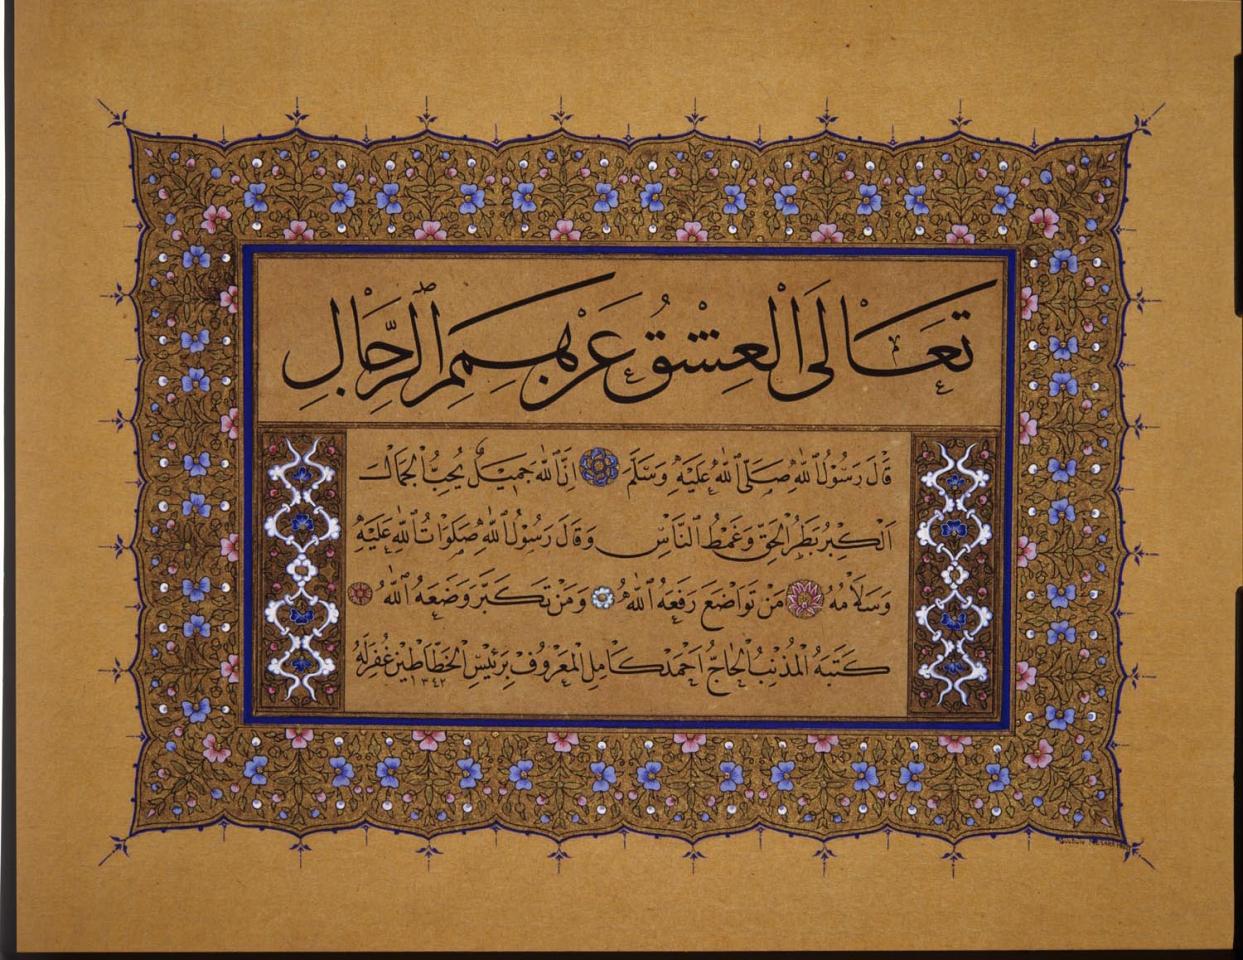 تَعَالَى الْعِشْقُ عَنْ هِمَمِ الرِّجَالِ
قَالَ رَسُولُ اللهِ صَلَّى اللهُ عَلَيْهِ وَسَلَّمَ اِنَّ اللهَ جَمِيلٌ يُحِبُّ الْجَمَالَ
اَلْكِبْرُ بَطَرُ الْحَقِّ وَغَمْطُ النَّاسِ وَقَالَ رَسُولُ اللهِ صَلَوَاتُ اللهِ عَلَيْهِ
وَسَلَامُهُ مَنْ تَوَاضَعَ رَفَعَهُ اللهُ وَمَنْ تَكَبَّرَ وَضَعَهُ اللهُ
كَتَبَهُ الْمُذْنِبُ الْحَاجُّ اَحْمَدْ كَامِلِ الْمَعْرُوفُ بِرَئِيسِ الْخَطَّاطِينْ غُفِرَ لَهُ ١٣٤٢